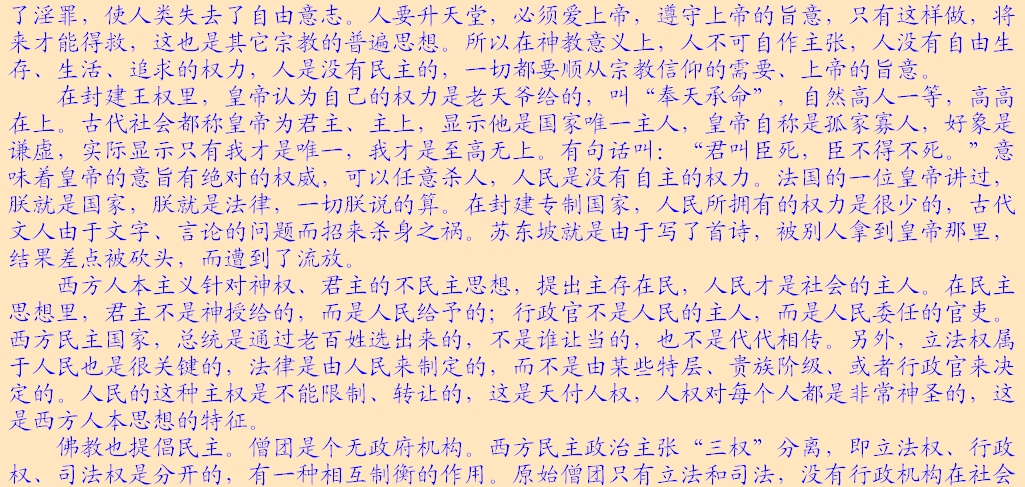 了淫罪，使人类失去了自由意志。人要升天堂，必须爱上帝，遵守上帝的旨意，只有这样做，将
来才能得救，这也是其它宗教的普遍思想。所以在神教意义上，人不可自作主张，人没有自由生
存、生活、追求的权力，人是没有民主的，一切都要顺从宗教信仰的需要、上帝的旨意。
在封建王权里，皇帝认为自己的权力是老天爷给的，叫“奉天承命”，自然高人一等，高高
在上。古代社会都称皇帝为君主、主上，显示他是国家唯一主人，皇帝自称是孤家寡人，好象是
谦虚，实际显示只有我才是唯一，我才是至高无上。有句话叫：“君叫臣死，臣不得不死。”意
味着皇帝的意旨有绝对的权威，可以任意杀人，人民是没有自主的权力。法国的一位皇帝讲过，
朕就是国家，朕就是法律，一切朕说的算。在封建专制国家，人民所拥有的权力是很少的，古代
文人由于文字、言论的问题而招来杀身之祸。苏东坡就是由于写了首诗，被别人拿到皇帝那里，
结果差点被砍头，而遭到了流放。
西方人本主义针对神权、君主的不民主思想，提出主存在民，人民才是社会的主人。在民主
思想里，君主不是神授给的，而是人民给予的；行政官不是人民的主人，而是人民委任的官吏。
西方民主国家，总统是通过老百姓选出来的，不是谁让当的，也不是代代相传。另外，立法权属
于人民也是很关键的，法律是由人民来制定的，而不是由某些特层、贵族阶级、或者行政官来决
定的。人民的这种主权是不能限制、转让的，这是天付人权，人权对每个人都是非常神圣的，这
是西方人本思想的特征。
佛教也提倡民主。僧团是个无政府机构。西方民主政治主张“三权”分离，即立法权、行政
权、司法权是分开的，有一种相互制衡的作用。原始僧团只有立法和司法，没有行政机构在社会